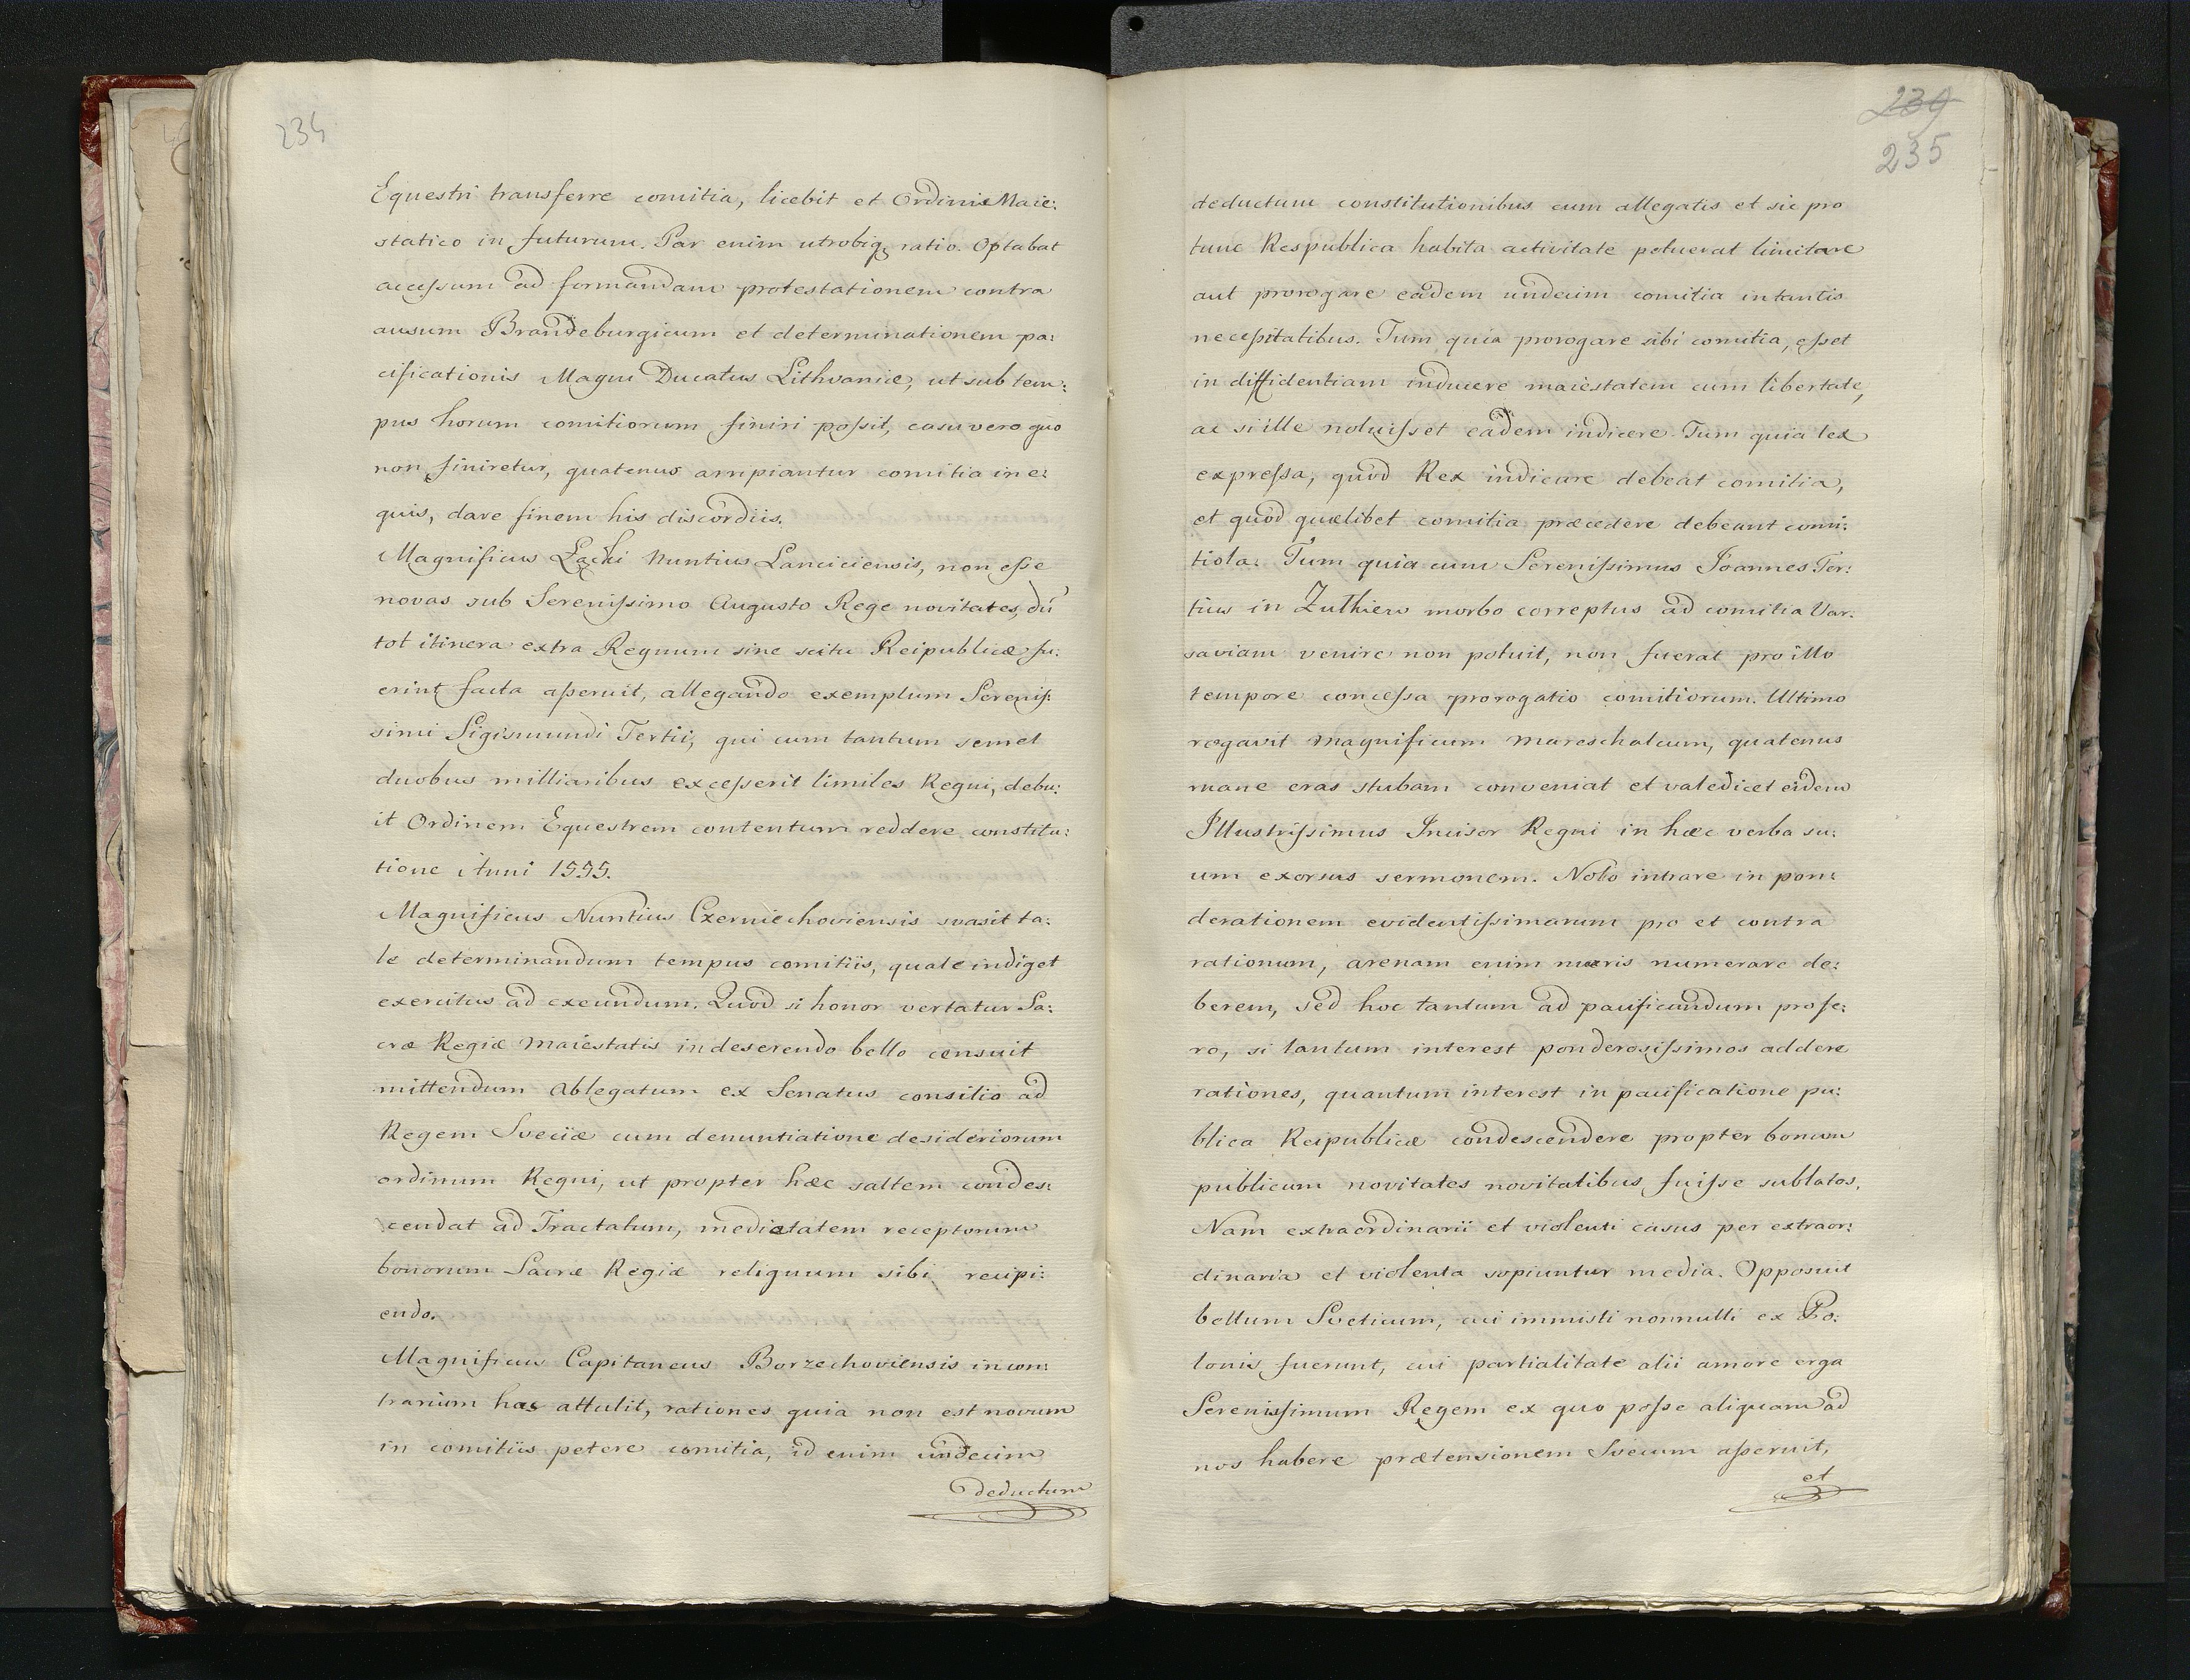 234
Equestri transferre comitia, licebit et Ordini Maie:
statico in futurum. Par enim utrobiq; ratio. Optabat
accessum ad formandam protestationem contra
ausum Brandeburgicum et determinationem pa:
cificationis Magni Ducatus Lithvaniæ, ut sub tem:
pus horum comitiorum finiri possit, casu vero quo
non finiretur, quatenus arripiantur comitia in e:
quis, dare finem his discordiis.
Magnificus Łącki Nuntius Lanciciensis, non esse
novas sub Serenissimo Augusto Rege novitates, dū
tot itinera extra Regnum sine scitu Reipublicæ fu:
erint facta asseruit, allegando exemplum Sereniss:
simi Sigismundi Tertii, qui cum tantum semel
duobus milliaribus excesserit limites Regni, debu:
it Ordinem Equestrem contentum reddere constitu:
tione Anni 1595.
Magnificus Nuntius Czerniechoviensis svasit ta:
le determinandum tempus comitiis, quale indiget
exercitus ad exeundum. Quod si honor vertatur Sa:
cræ Regiæ Maiestatis in deserendo bello censuit
mittendum Ablegatum ex Senatus consilio ad
Regem Sveciæ cum denuntiatione desideriorum
ordinum Regni, ut propter hæc saltem condes:
cendat ad Tractatum, medietatem receptorum
bonorum Sacræ Regiæ reliquum sibi recipi:
endo.
Magnificus Capitaneus Borzechoviensis in con:
trarium has attulit, rationes quia non est novum
in comitiis petere comitia, id enim undecim
deductum
239
235
deductum constitutionibus cum allegatis et sic pro
tunc Respublica habita activitate potuerat limitare
aut prorogare eadem undecim comitia in tantis
necessitatibus. Tum quia prorogare sibi comitia, esset
in diffidentiam inducere maiestatem cum libertate,
ac si ille noluisset eadem indicere. Tum quia lex
expressa, quod Rex indicare debeat comitia,
et quod quælibet comitia præcedere debeant comi:
tiola. Tum quia cum Serenissimus Joannes Ter:
tius in Zuthiew morbo correptus ad comitia Var:
saviam venire non potuit, non fuerat pro illo
tempore concessa prorogatio comitiorum. Ultimo
rogavit Magnificum Mareschalcum, quatenus
mane cras stubam conveniat et valedicet eidem
Illustrissimus Incisor Regni in hæc verba su:
um exorsus sermonem. Nolo intrare in pon:
derationem evidentissimarum pro et contra
rationum, arenam enim maris numerare de:
berem, sed hoc tantum ad pacificandum profe:
ro, si tantum interest ponderosissimos addere
rationes, quantum interest in pacificatione pu:
blica Reipublicæ condescendere propter bonum
publicum novitates novitatibus fuisse sublatos.
Nam extraordinarii et violenti casus per extraor:
dinaria et violenta sopiuntur media. Opposuit
bellum Sveticum, cui immisti nonnulli ex Po:
lonis fuerunt, cui partialitate alii amore erga
Serenissimum Regem ex quo posse aliquam ad
nos habere prætensionem Svecum asseruit,
et